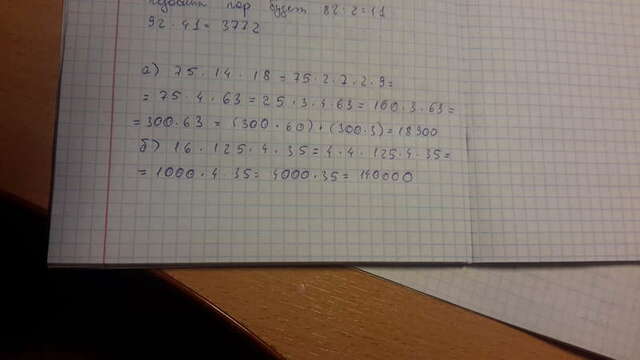 пар будет 82:2=41
92·41=3772
а) 75·14·18=75·2·7·2·9=
=75·4·63=25·3·4·63=100·3·63=
=300·63=(300·60)+(300·3)=18300
б) 16·125·4·35=4·4·125·4·35=
=1000·4·35=4000·35=140000